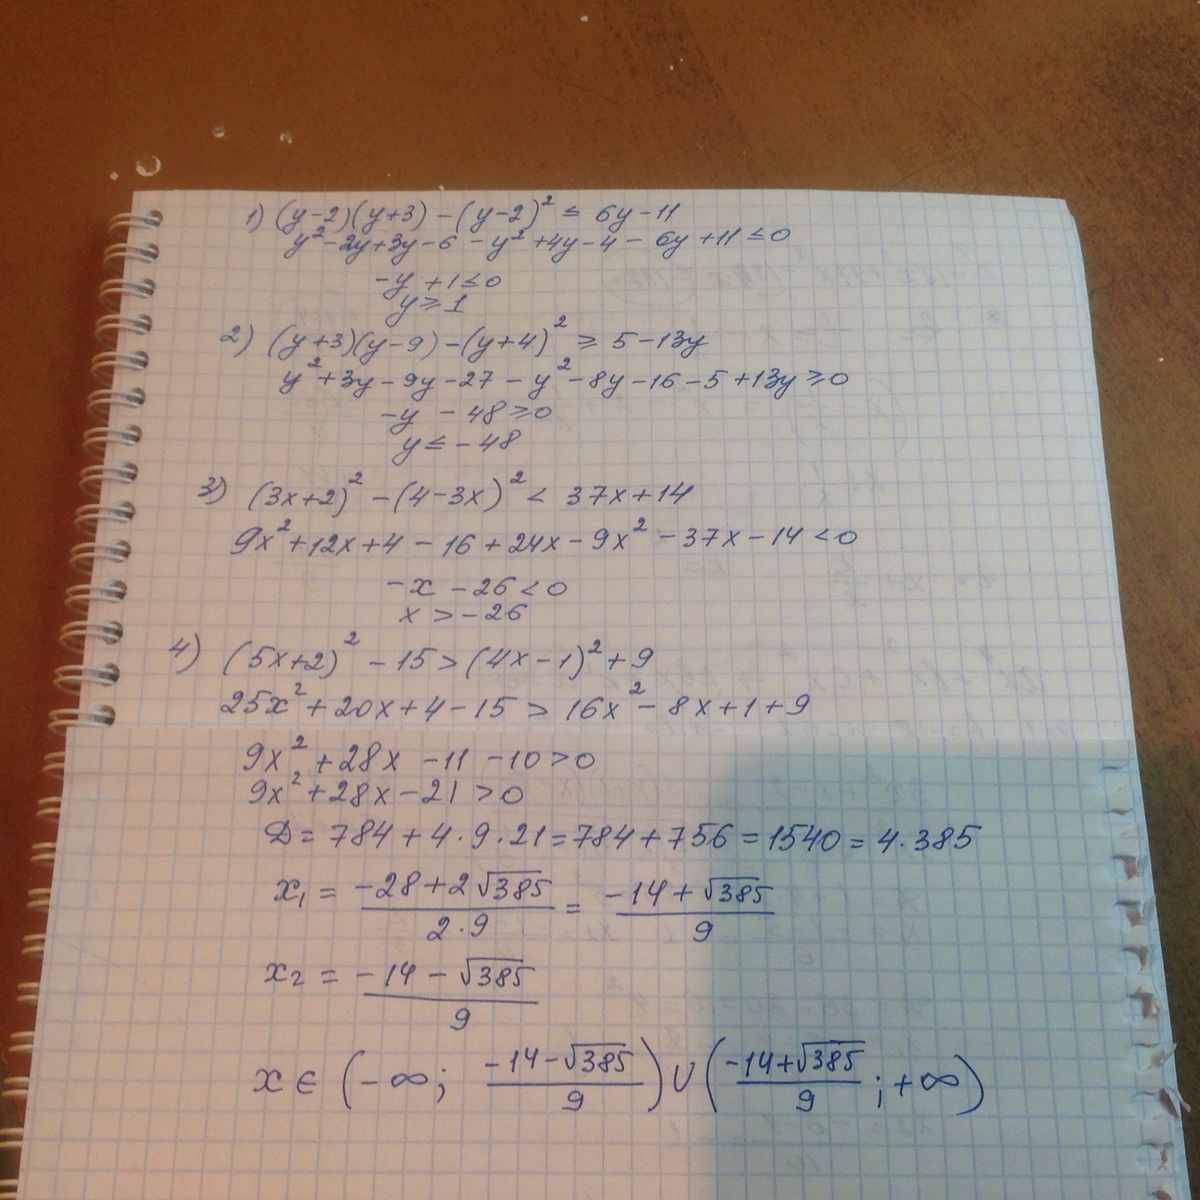 1) (y-2)(y+3) - (y-2)² ≤ 6y-11
y² - 2y + 3y - 6 - y² + 4y - 4 - 6y + 11 ≤ 0
-y + 1 ≤ 0
y ≥ 1
2) (y+3)(y-9) - (y+4)² ≥ 5 - 13y
y² + 3y - 9y - 27 - y² - 8y - 16 - 5 + 13y ≥ 0
-y - 48 ≥ 0
y ≤ -48
3) (3x+2)² - (4-3x)² < 37x + 14
9x² + 12x + 4 - 16 + 24x - 9x² - 37x - 14 < 0
-x - 26 < 0
x > -26
4) (5x+2)² - 15 > (4x-1)² + 9
25x² + 20x + 4 - 15 > 16x² - 8x + 1 + 9
9x² + 28x - 11 - 10 > 0
9x² + 28x - 21 > 0
D = 784 + 4·9·21 = 784 + 756 = 1540 = 4·385
x₁ = (-28+2√385)/(2·9) = (-14+√385)/9
x₂ = (-14-√385)/9
x ∈ (-∞; (-14-√385)/9) ∪ ((-14+√385)/9; +∞)